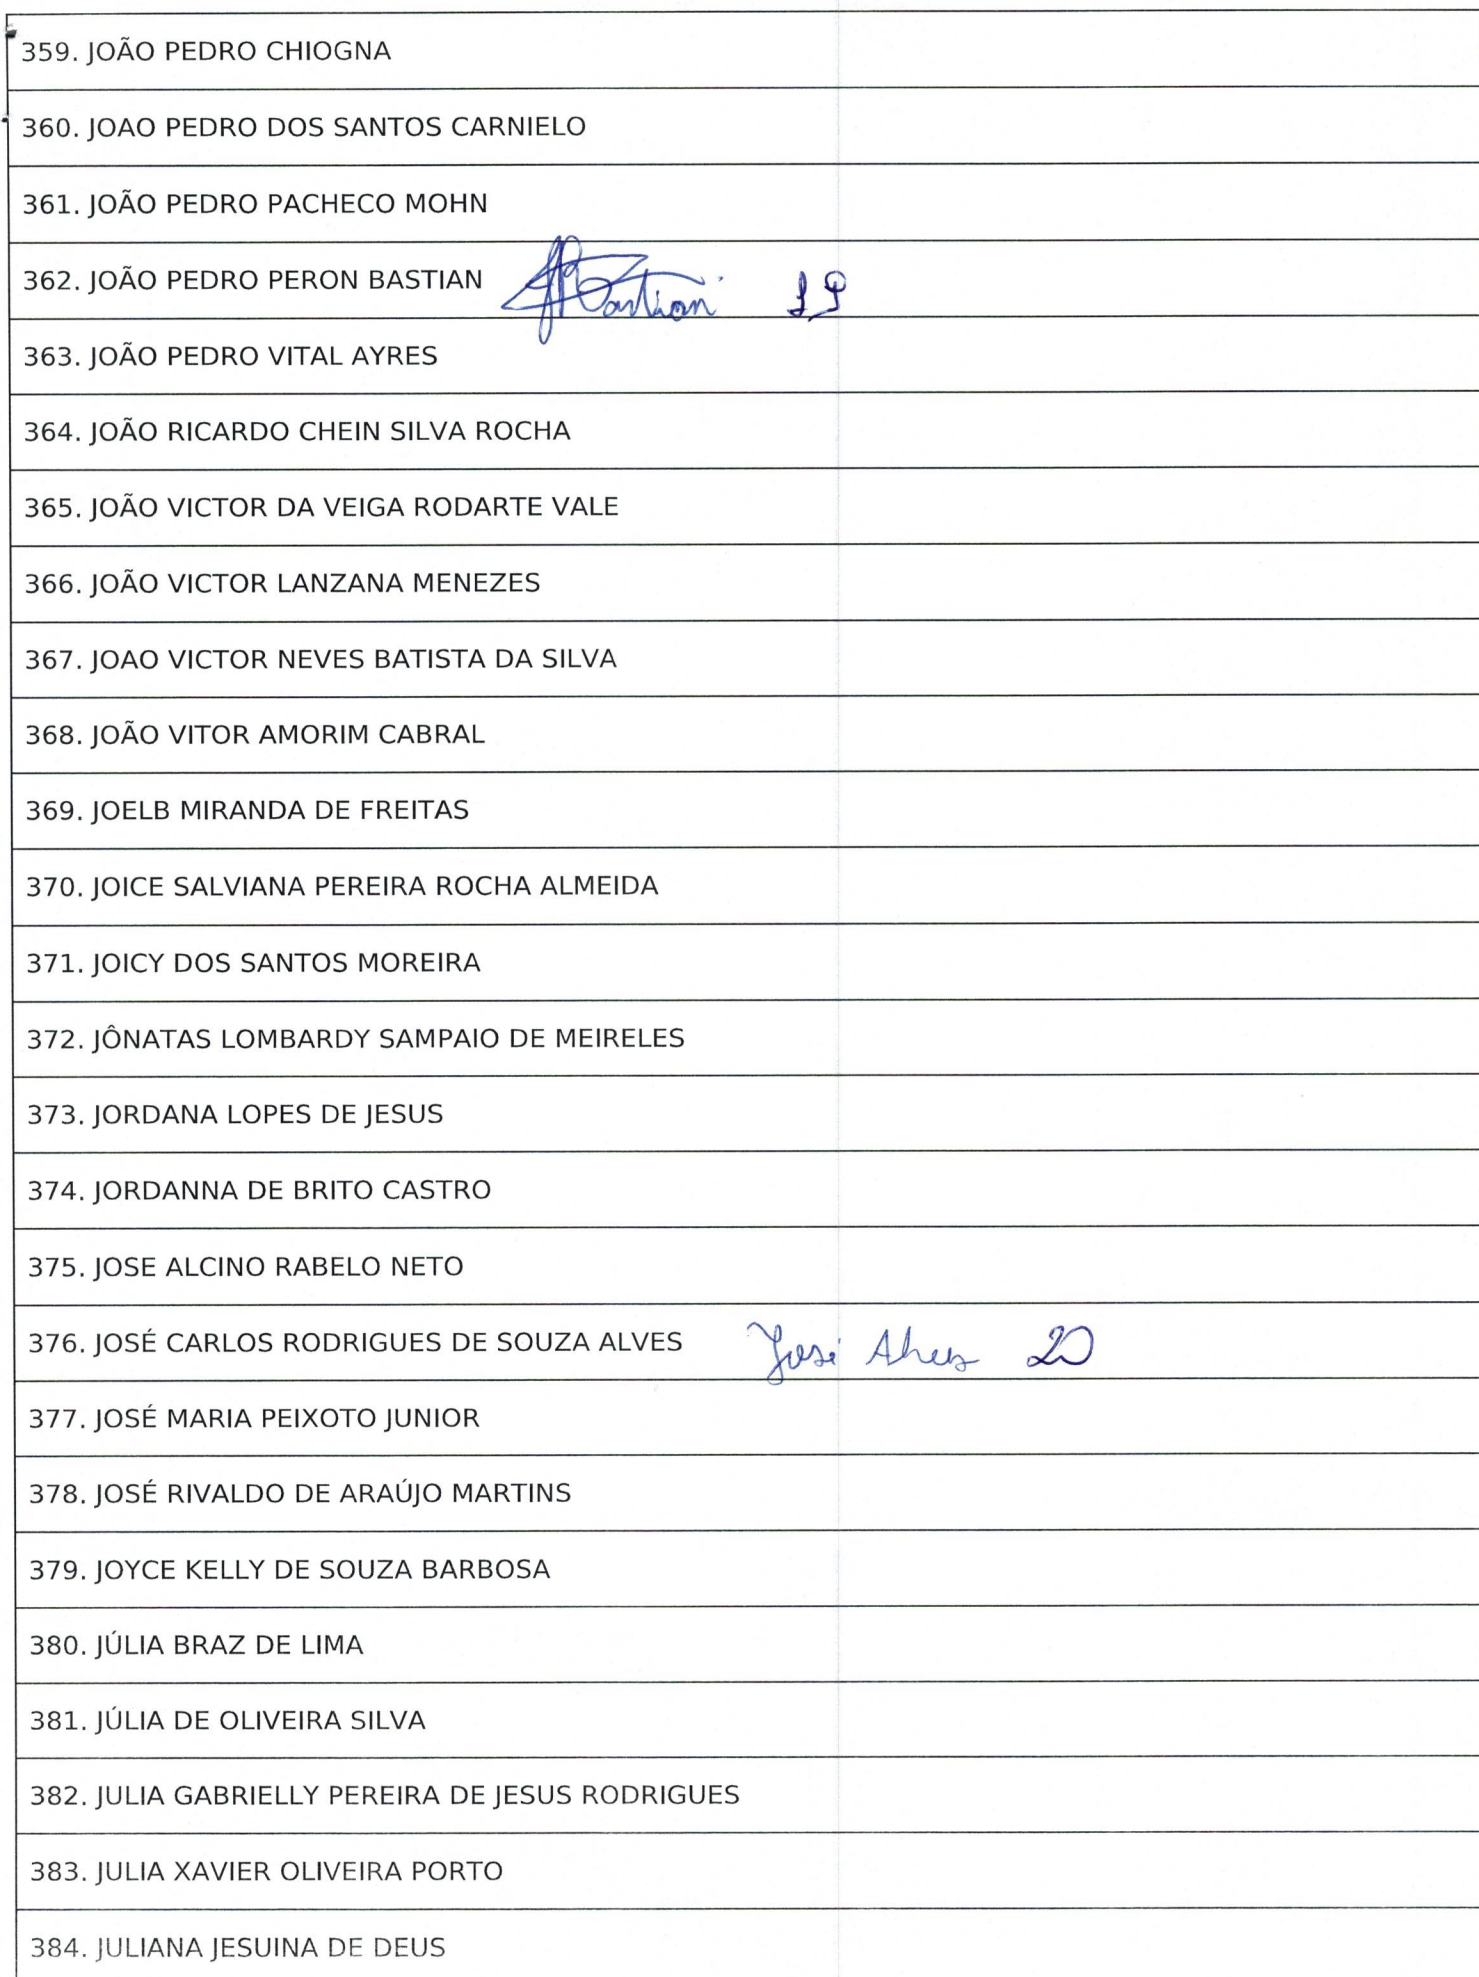 359. JOÃO PEDRO CHIOGNA
360. JOAO PEDRO DOS SANTOS CARNIELO
361. JOÃO PEDRO PACHECO MOHN
362. JOÃO PEDRO PERON BASTIAN Bastian
363. JOÃO PEDRO VITAL AYRES
364. JOÃO RICARDO CHEIN SILVA ROCHA
365. JOÃO VICTOR DA VEIGA RODARTE VALE
366. JOÃO VICTOR LANZANA MENEZES
367. JOAO VICTOR NEVES BATISTA DA SILVA
368. JOÃO VITOR AMORIM CABRAL
369. JOELB MIRANDA DE FREITAS
370. JOICE SALVIANA PEREIRA ROCHA ALMEIDA
371. JOICY DOS SANTOS MOREIRA
372. JÔNATAS LOMBARDY SAMPAIO DE MEIRELES
373. JORDANA LOPES DE JESUS
374. JORDANNA DE BRITO CASTRO
375. JOSE ALCINO RABELO NETO
376. JOSÉ CARLOS RODRIGUES DE SOUZA ALVES José Alves 20
377. JOSÉ MARIA PEIXOTO JUNIOR
378. JOSÉ RIVALDO DE ARAÚJO MARTINS
379. JOYCE KELLY DE SOUZA BARBOSA
380. JÚLIA BRAZ DE LIMA
381. JÚLIA DE OLIVEIRA SILVA
382. JULIA GABRIELLY PEREIRA DE JESUS RODRIGUES
383. JULIA XAVIER OLIVEIRA PORTO
384. JULIANA JESUINA DE DEUS